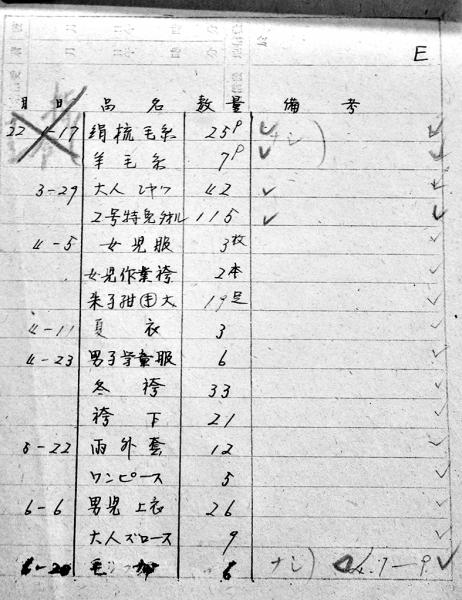 E
月 日 品名 数量 備考
22 1-17 絹梳毛糸 25P ナシ)
羊毛糸 7P
3-29 大人シャツ 42
2号特免タオル 115
4-5 女児服 3枚
女児作業袴 2本
朱子甜 大 19足
4-11 夏衣 3
4-23 男子学童服 6
冬袴 33
袴下 21
5-22 雨外套 12
ワンピース 5
6-6 男児上衣 26
大人ズロース 9
6-20 毛 6 ナシ) 7-9